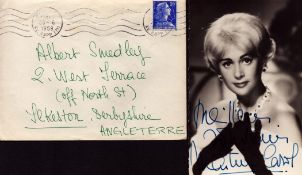 1959
Albert Smedley
2. West Terrace
(off North St)
Ilkeston Derbyshire
ANGLETERRE
Meilleur
Souvenir
Martine Carol